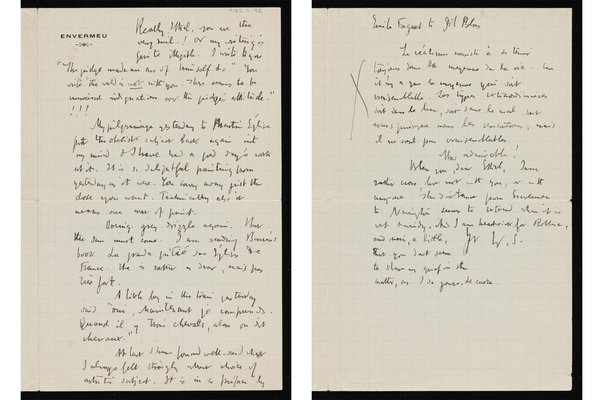 ENVERMEU
Really Ethel, you are the
very devil! Or my writing is
quite illegible. I write to you
"The judge made an ass of himself &c" You
write "the world is not with you there seems to be
universal indignation over the judge's attitude."
!!!
My pilgrimage yesterday to Martin Eglise
put the subject back again into
my mind & I have had a good day's work
at it. It is delightful painting from
yesterday as it were. You carry away just the
dose you want. Technically also it
means one coat of paint.
Boring grey drizzle again. How
the sun must come. I am sending Barrès's
book La grande pitié des Eglises de
France. He is rather a dear, mais pas
très fort.
A little boy in the train yesterday
said "oui, maintenant je comprends.
Quand il y trois chevals, alors on dit
chevaux."
At last I have found well said what
I always felt strongly about choice of
artistic subject. It is in a preface by
Emile Faguet to Gil Blas
Le réalisme consiste à se tenir
toujours dans la moyenne de la vie - car
il n'y a que la moyenne qui soit
vraisemblable. Les types extraordinaires
soit dans le bien, soit dans le mal, sont
vrais puisque nous les rencontrons, mais
ils ne sont pas vraisemblables.
How admirable!
When you dear Ethel, I am
rather cross, love not with you, or with
anyone. The distance from Envermeu
to Neuville seems to extend when it is
wet & windy. And I am
and miss, a little, Yr W. S.
that you don't seem
to share my grief in the
matter, as I do yours, de cuore.